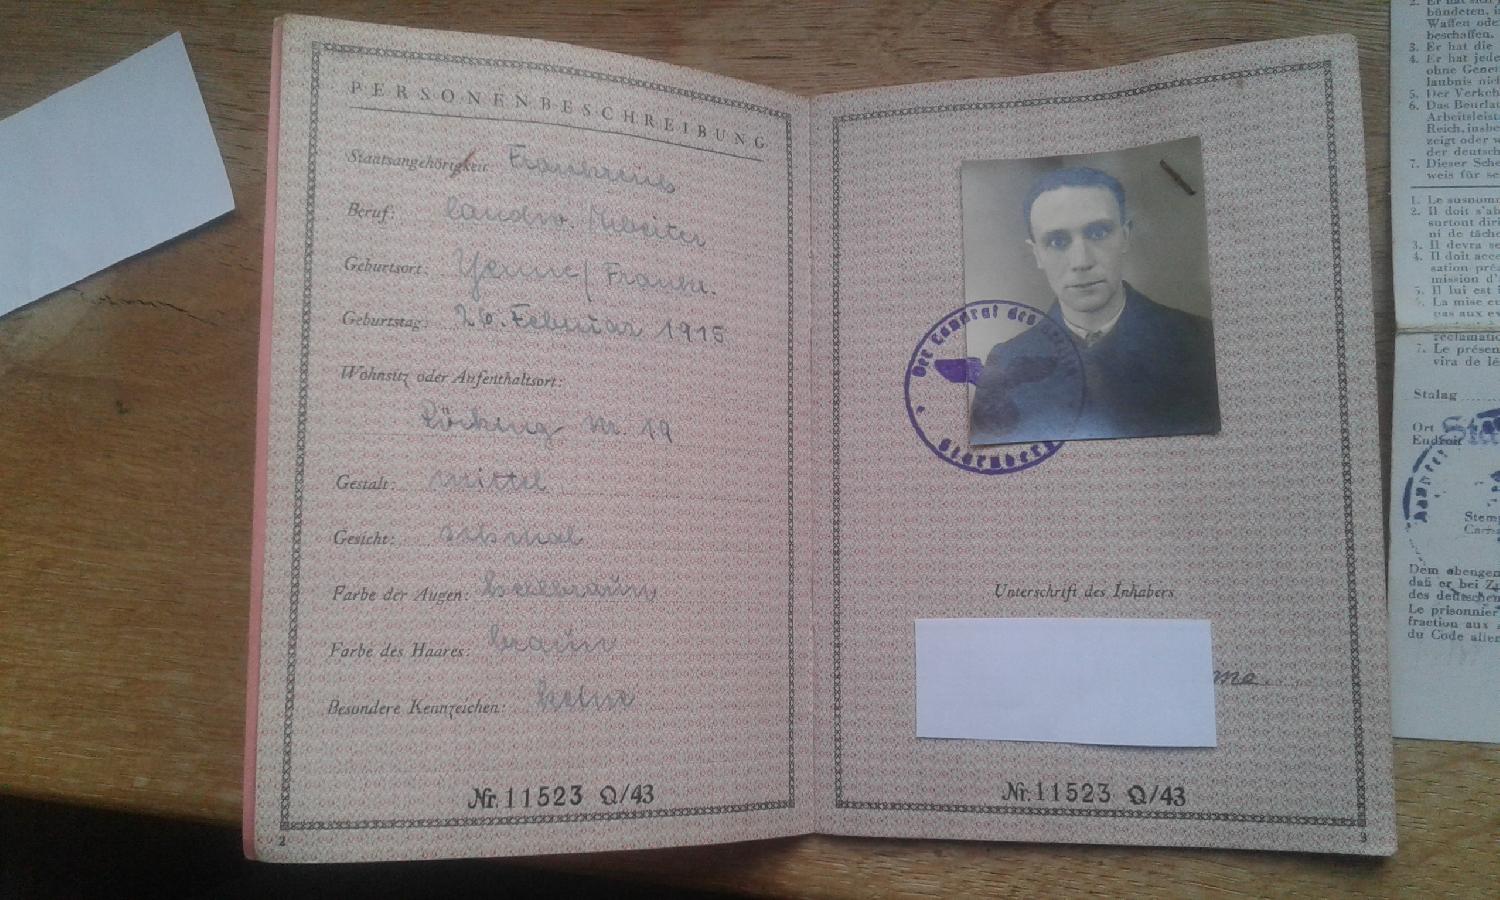 PERSONENBESCHREIBUNG
Staatsangehörigkeit: Frankreich
Beruf: landw. Arbeiter
Geburtsort: Yenne/Frankr.
Geburtstag: 26. Februar 1915
Wohnsitz oder Aufenthaltsort:
Nr. 19
Gestalt: mittel
Gesicht: schmal
Farbe der Augen: hellbraun
Farbe des Haares: braun
Besondere Kennzeichen: keine
Nr. 11523 Q/43
2
Der Landrat des
Starnberg
Unterschrift des Inhabers
Nr. 11523 Q/43
3
bündeten, i
Waffen ode
beschaffen.
3. Er hat die
4. Er hat jede
ohne Gener
laubnis nich
5. Der Verkeh
6. Das Beurla
Arbeitsleist
Reich, insbe
zeigt oder w
der deutsch
7. Dieser Sche
weis für se
1. Le susnomm
2. Il doit s'ab
surtout dir
ni de tâche
3. Il devra se
4. Il doit acce
sation pré
mission d'
5. Il lui est
6. La mise en
pas aux ex
réclamatio
7. Le présen
vira de lé
Stalag
Ort
Endroit
Stem
Dem obengen
daß er bei Z
des deutschen
Le prisonnier
fraction aux
du Code aller